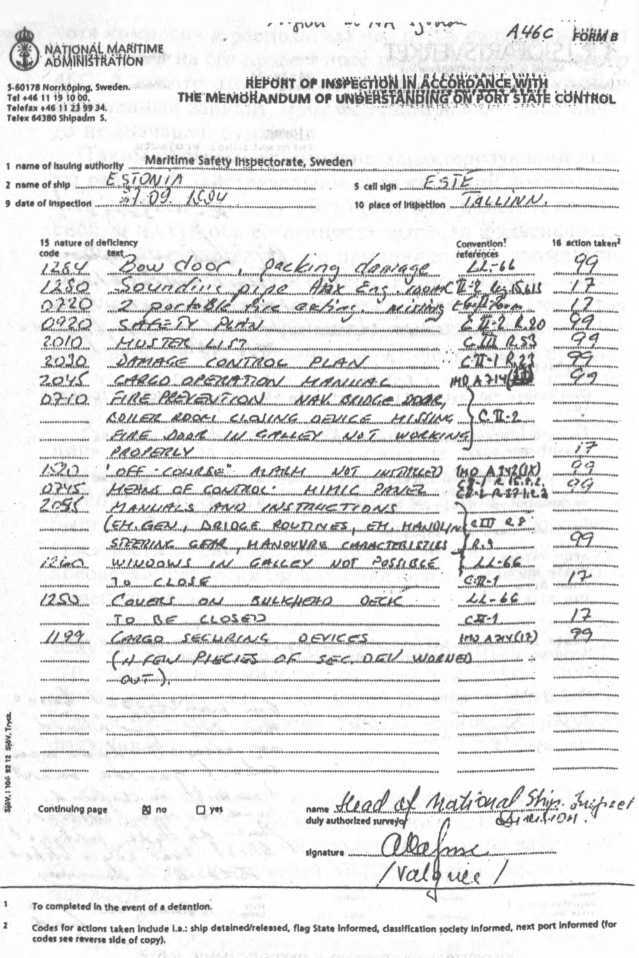 A46C FORM B
NATIONAL MARITIME
ADMINISTRATION
S-60178 Norrköping, Sweden.
Tel +46 11 19 10 00.
Telefax +46 11 23 99 34.
Telex 64380 Shipadm S.
REPORT OF INSPECTION IN ACCORDANCE WITH
THE MEMORANDUM OF UNDERSTANDING ON PORT STATE CONTROL
1 name of issuing authority Maritime Safety Inspectorate, Sweden
2 name of ship ESTONIA 5 call sign ESTE
9 date of inspection 09. 10 place of inspection TALLINN.
15 nature of deficiency Convention¹ 16 action taken²
code text references
1284 Bow door, packing damage LL-66 99
1250 Sounding pipe Aux Eng. room C II-2 17
0720 2 portable fire exting. missing 17
0920 SAFETY PLAN C II-2 R.20 99
2010 MUSTER LIST C III R.53 99
2030 DAMAGE CONTROL PLAN C II-1 R.23 99
2045 CARGO OPERATION MANUAL IMO A714 99
0710 FIRE PREVENTION NAV. BRIDGE DOOR,
BOILER ROOM CLOSING DEVICE MISSING C II-2
FIRE DOOR IN GALLEY NOT WORKING
PROPERLY 17
1520 "OFF-COURSE" ALARM NOT INSTALLED IMO A342(IX) 99
0745 MEANS OF CONTROL. MIMIC PANEL 99
2055 MANUALS AND INSTRUCTIONS
(EM.GEN, BRIDGE ROUTINES, EM. HANDLIN C III R 8
STEERING GEAR, MANOUVRE CHARACTERISTIES R.9 99
1260 WINDOWS IN GALLEY NOT POSSIBLE LL-66
TO CLOSE C II-1 17
1250 COVERS ON BULKHEAD DECK LL-66
TO BE CLOSED C II-1 17
1199 CARGO SECURING DEVICES IMO A714(17) 99
(A FEW PIECIES OF SEC. DEV WORNED
OUT).
Continuing page ☒ no ☐ yes
name Head of National Ship. Inspect
duly authorized surveyor Division.
signature
1 To completed in the event of a detention.
2 Codes for actions taken include i.a.: ship detained/released, flag State informed, classification society informed, next port informed (for
codes see reverse side of copy).